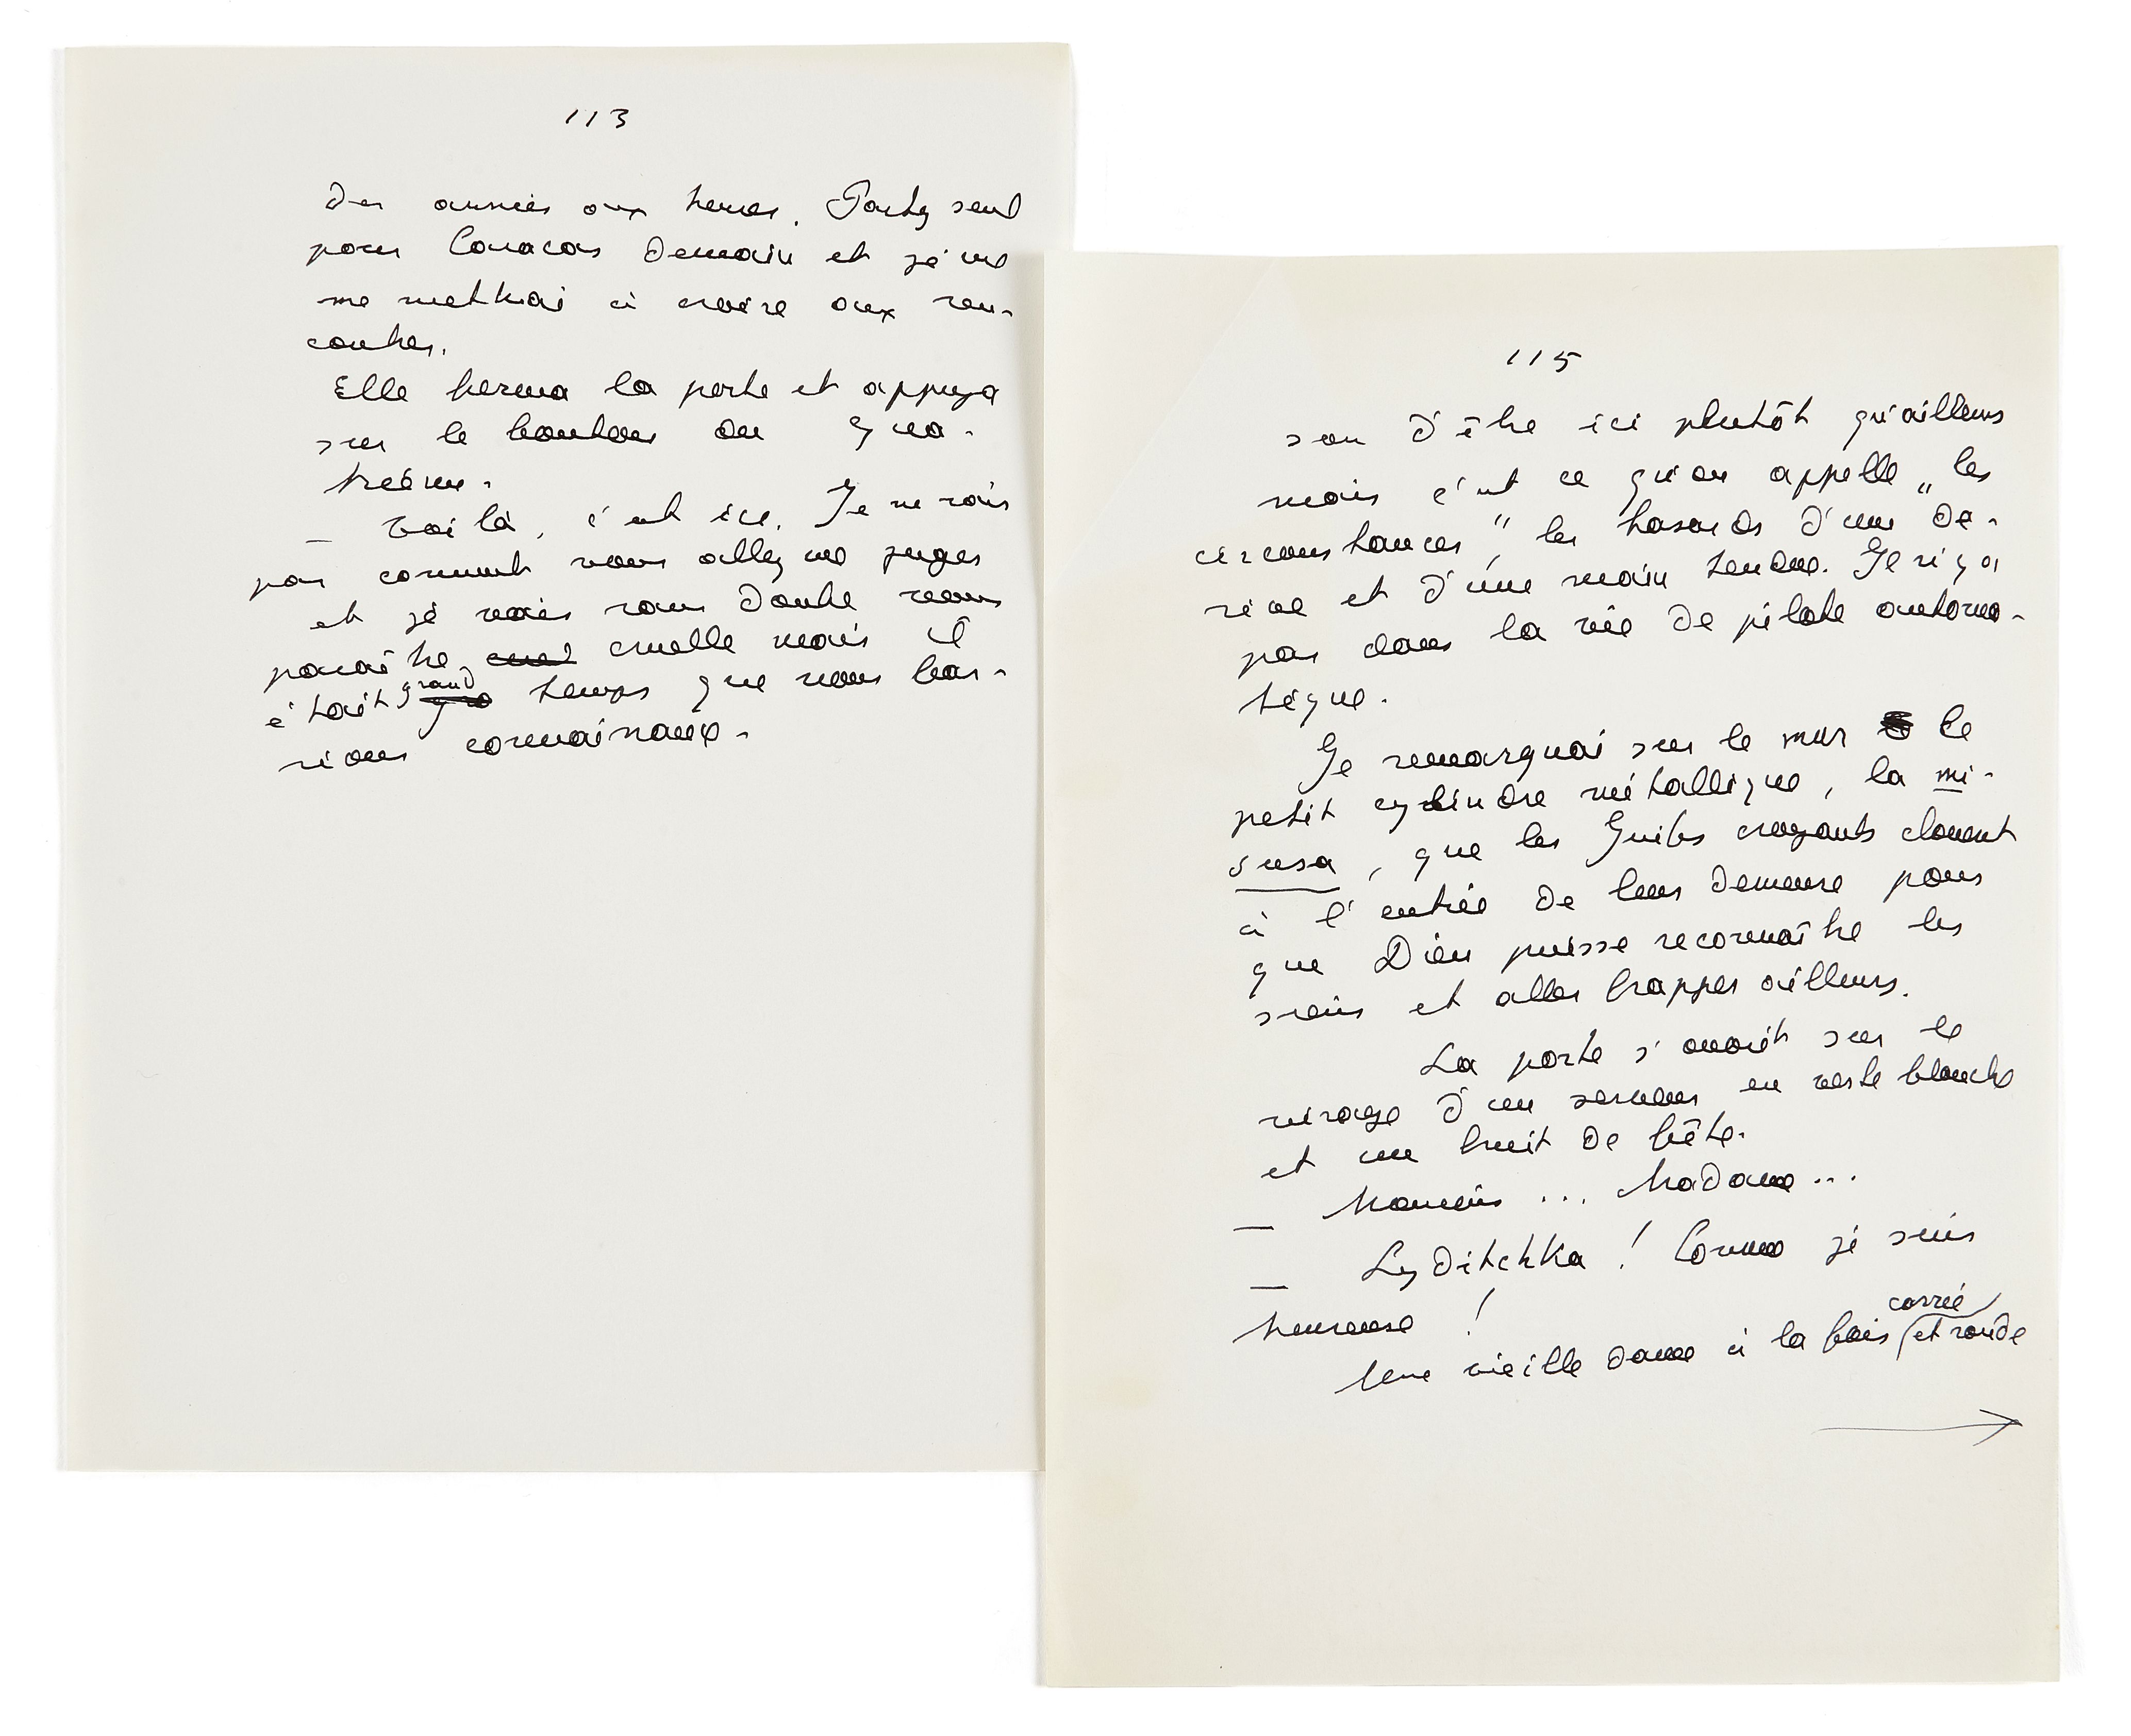 113
des années aux heures. Partez seul
pour Caracas demain et je me
me mettrai à croire aux ren-
contres.
Elle ferma la porte et appuya
sur le bouton du qua-
trième.
_ Voilà, c'est ici. Je ne sais
pas comment vous allez me juger
et je vais sans doute vous
paraître, cruel cruelle mais il
grand
était gra temps que nous fas-
sions connaissance.
115
son d'être ici plutôt qu'ailleurs
mais c'est ce qu'on appelle „les
circonstances", les hasards d'une dé-
rive et d'une main tendue. Il n'y a
pas dans la vie de pilote automa-
tique.
Je remarquai sur le mur le
petit cylindre métallique, la mi-
susa, que les Juifs croyants clouent
à l'entrée de leur demeure pour
que Dieu puisse reconnaître les
siens et aller frapper ailleurs.
La porte s'ouvrit sur le
visage d'un serveur en veste blanche
et un bruit de fête.
_ Monsieur ... Madame ...
_ Lyditchka ! Comme je suis
heureuse !
carrée
Une vieille dame à la fois et ronde